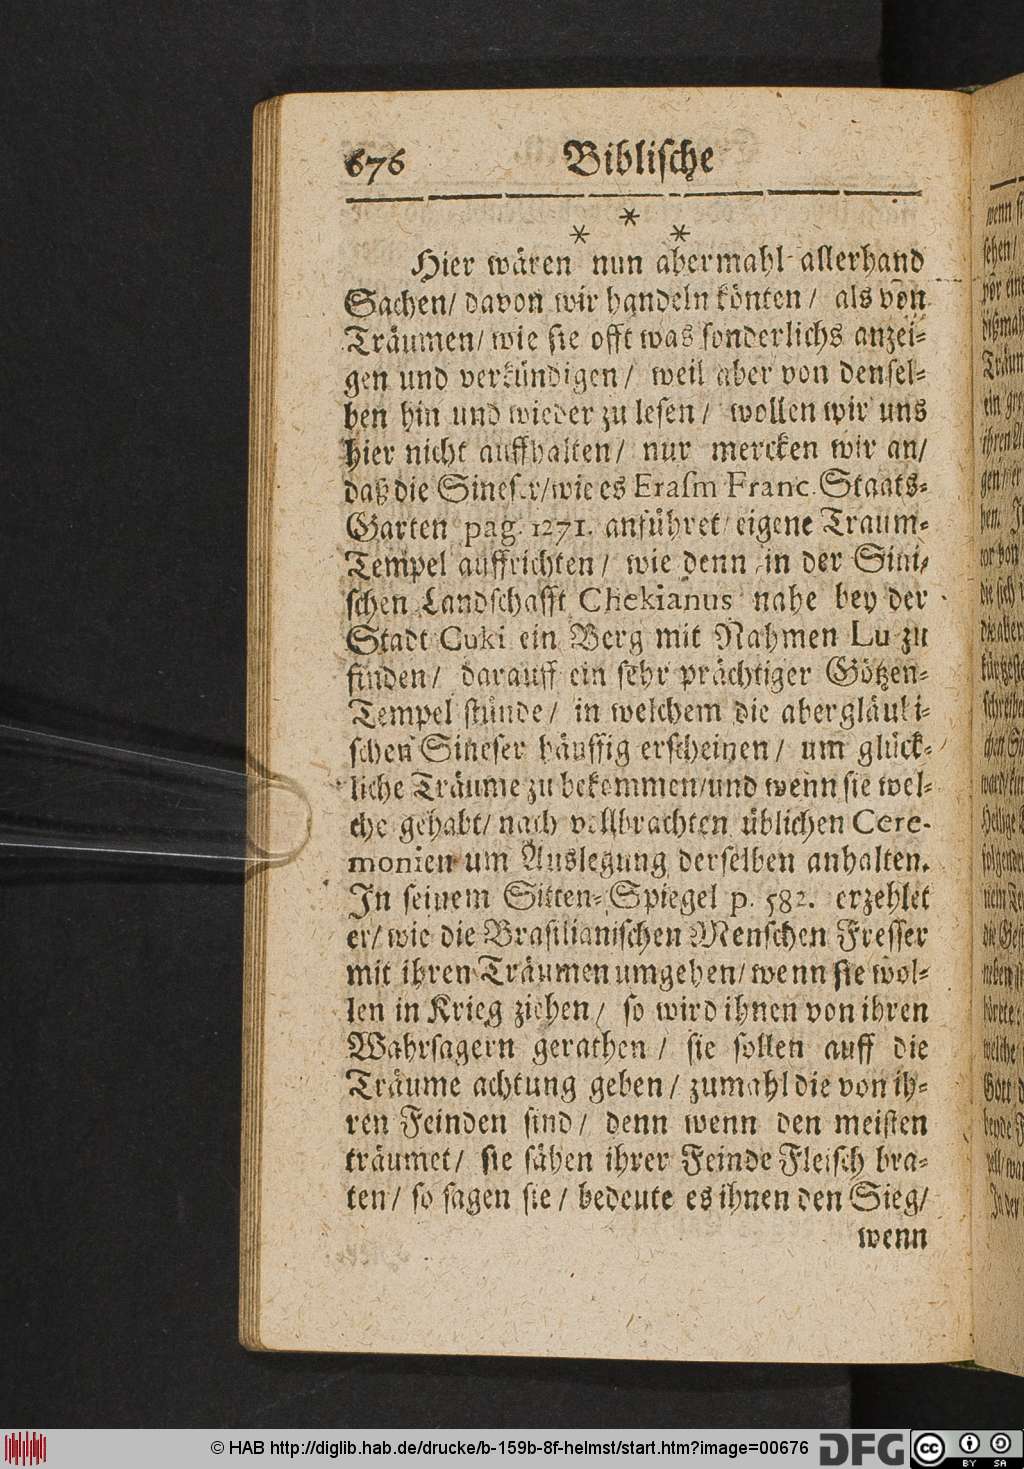 676 Biblische
* * *
Hier wären nun abermahl allerhand
Sachen/ davon wir handeln könten/ als von
Träumen/ wie sie offt was sonderlichs anzei-
gen und verkündigen/ weil aber von densel-
ben hin und wieder zu lesen/ wollen wir uns
hier nicht auffhalten/ nur mercken wir an/
daß die Sineser/wie es Erasm Franc. Staats-
Garten pag. 1271. anführet/ eigene Traum-
Tempel auffrichten/ wie denn in der Sini-
schen Landschafft Chekianus nahe bey der
Stadt Cuki ein Berg mit Nahmen Lu zu
finden/ darauff ein sehr prächtiger Götzen-
Tempel stünde/ in welchem die abergläubi-
schen Sineser häuffig erscheinen/ um glück-
liche Träume zu bekommen/und wenn sie wel-
che gehabt/ nach vollbrachten üblichen Cere-
monien um Auslegung derselben anhalten.
In seinem Sitten-Spiegel p. 582. erzehlet
er/ wie die Brasilianischen Menschen Fresser
mit ihren Träumen umgehen/ wenn sie wol-
len in Krieg ziehen/ so wird ihnen von ihren
Wahrsagern gerathen/ sie sollen auff die
Träume achtung geben/ zumahl die von ih-
ren Feinden sind/ denn wenn den meisten
träumet/ sie sähen ihrer Feinde Fleisch bra-
ten/ so sagen sie/ bedeute es ihnen den Sieg/
wenn
© HAB http://diglib.hab.de/drucke/b-159b-8f-helmst/start.htm?image=00676 DFG cc BY SA